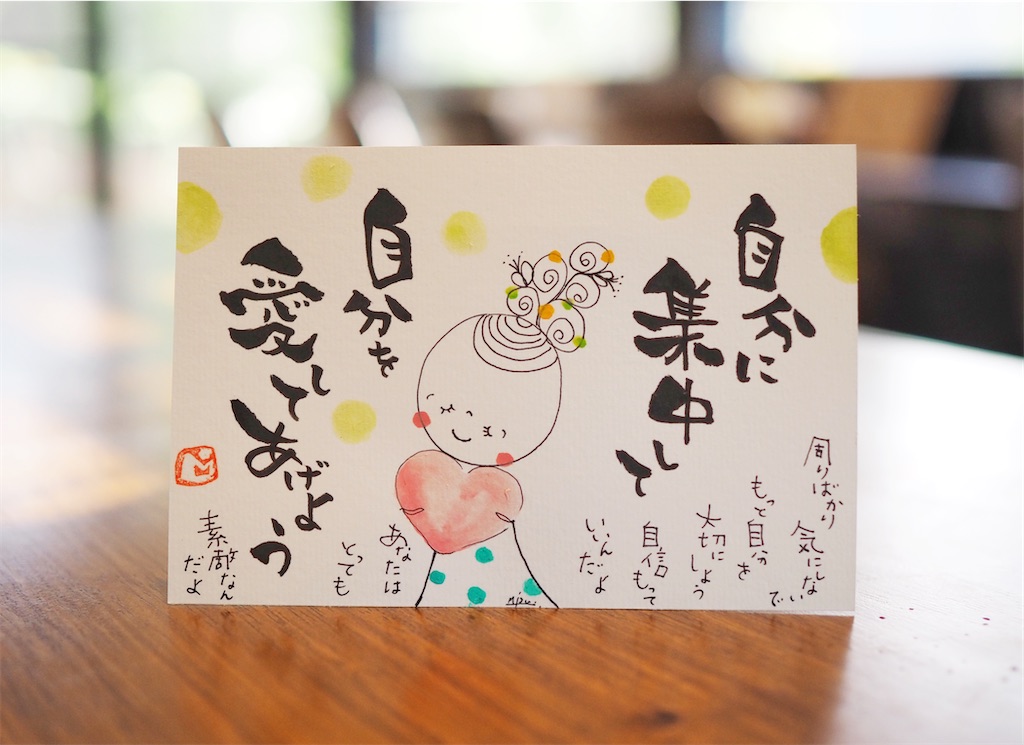 自分に
集中して
自分を
愛してあげよう
周りばかり
気にしない
で
もっと自分を
大切にしよう
自信もって
いいんだよ
あなたは
とっても
素敵なん
だよ